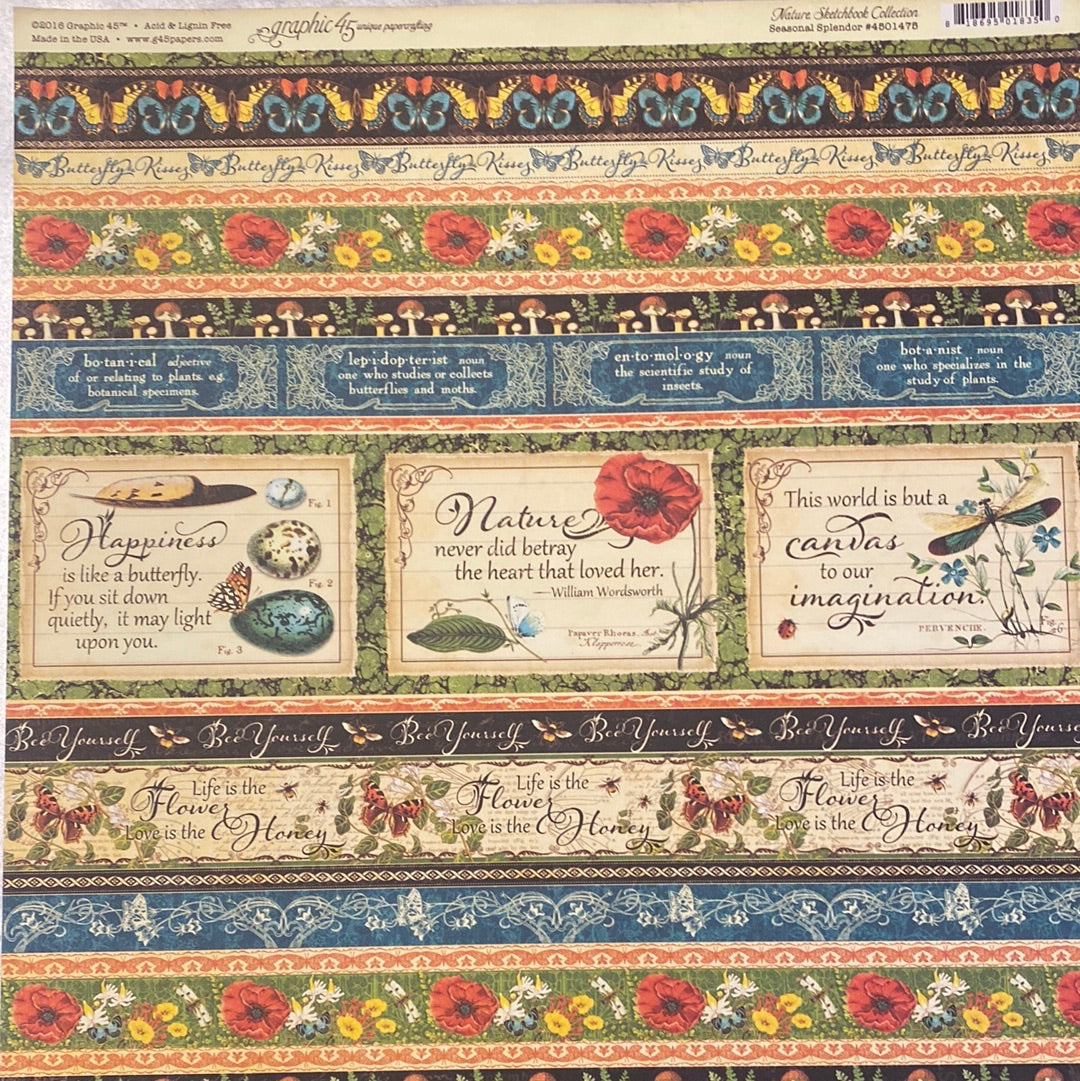 ©2016 Graphic 45™ • Acid & Lignin Free
Made in the USA • www.g45papers.com
graphic 45 unique papercrafting
Nature Sketchbook Collection
Seasonal Splendor #4501475
8 18695 01835 0
Butterfly Kisses Butterfly Kisses Butterfly Kisses Butterfly Kisses Butterfly Kisses Butterfly Kisses
bo·tan·i·cal adjective
of or relating to plants. e.g.
botanical specimens.
lep·i·dop·ter·ist noun
one who studies or collects
butterflies and moths.
en·to·mol·o·gy noun
the scientific study of
insects.
bot·a·nist noun
one who specializes in the
study of plants.
Fig. 1
Happiness
is like a butterfly.
If you sit down
quietly, it may light
upon you.
Fig. 2
Fig. 3
Nature
never did betray
the heart that loved her.
—William Wordsworth
Papaver Rhoeas.
Klapperrose.
This world is but a
canvas
to our
imagination.
PERVENCHE.
Fig. 6
Bee Yourself Bee Yourself Bee Yourself Bee Yourself Bee Yourself Bee Yourself
Life is the
Flower
Love is the Honey
Life is the
Flower
Love is the Honey
Life is the
Flower
Love is the Honey